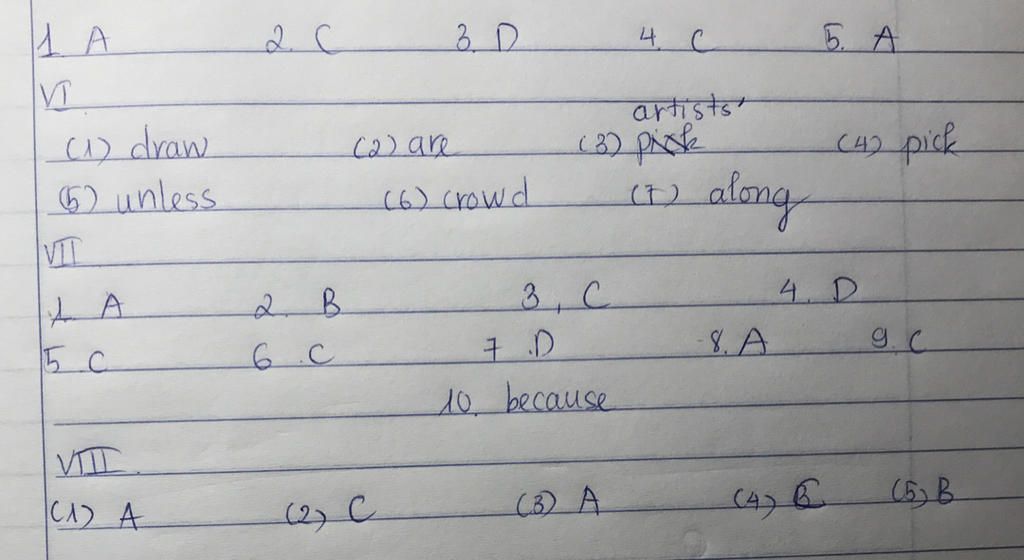 1 A 2. C 3. D 4. C 5. A
VI
artists'
(1) draw (2) are (3) pick (4) pick
(5) unless (6) crowd (7) along
VII
1 A 2. B 3, C 4. D
5 C 6. C 7.D 8. A 9. C
10. because
VIII.
(1) A (2) C (3) A (4) C (5) B